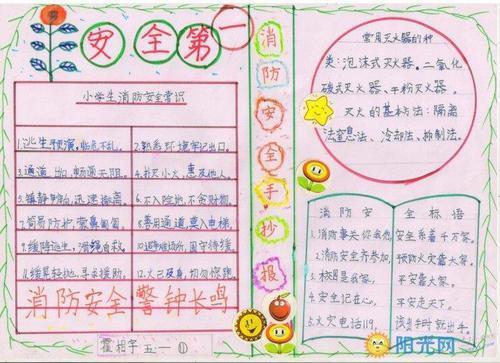 安全第一
小学生消防安全常识
1.逃生预演,临危不乱。
2.熟悉环境牢记出口。
3.通道出口,畅通无阻。
4.扑灭小火,惠及他人。
5.镇静辨向,迅速撤离。
6.不入险地,不贪财物。
7.简易防护,蒙鼻匍匐。
8.善用通道,莫入电梯。
9.缓降逃生,滑绳自救。
10.避难场所,固守待援。
11.缓晃轻抛,寻求援助。
12.火已及身,切勿惊跑。
消防安全 警钟长鸣
霍相宇 五一 ①
消防安全手抄报
常见灭火器的种
类:泡沫式灭火器、二氧化
碳式灭火器、干粉灭火器。
灭火的基本方法:隔离
法、窒息法、冷却法、抑制法。
消防安全标语
1.消防事关你我他,安全系着千万家。
2.消防安全齐参加,预防火灾靠大家。
3.校园是我家,平安靠大家。
4.安全记在心,平安走天下。
5.火灾电话119,
阳光网